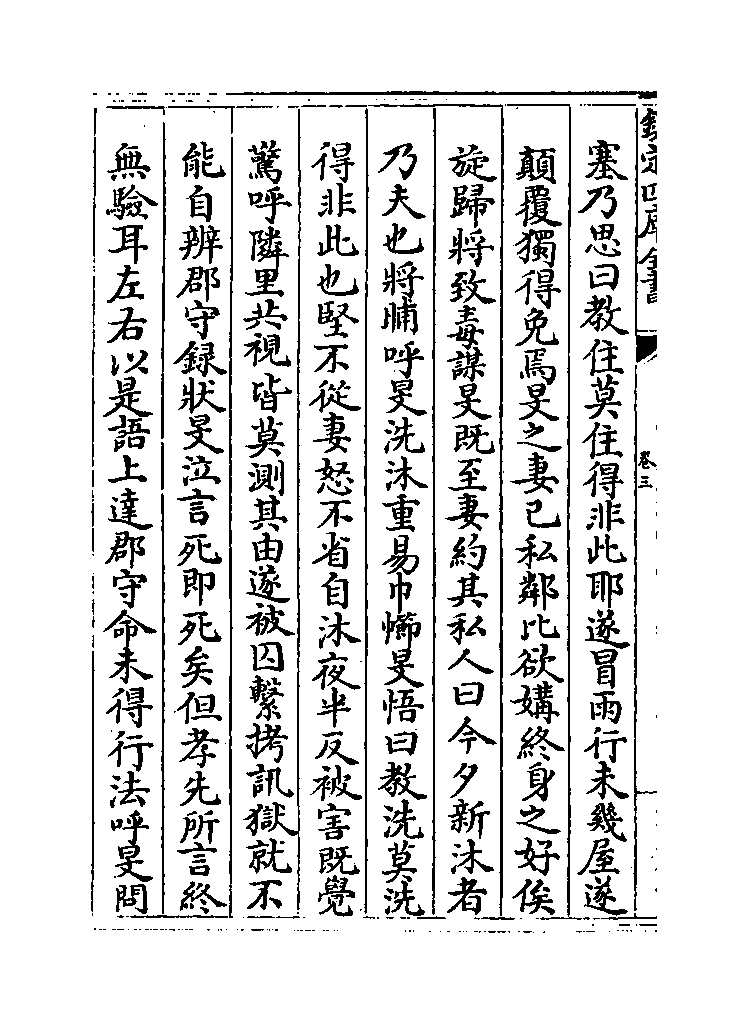 欽定四庫全書
卷三
塞乃思曰教住莫住得非此耶遂冒雨行未幾屋遂
顛覆獨得免焉旻之妻已私鄰比欲媾終身之好俟
旋歸將致毒謀旻既至妻約其私人曰今夕新沐者
乃夫也將晡呼旻洗沐重易巾櫛旻悟曰教洗莫洗
得非此也堅不從妻怒不省自沐夜半反被害既覺
驚呼隣里共視皆莫測其由遂被囚繫拷訊獄就不
能自辨郡守録狀旻泣言死即死矣但孝先所言終
無驗耳左右以是語上達郡守命未得行法呼旻問